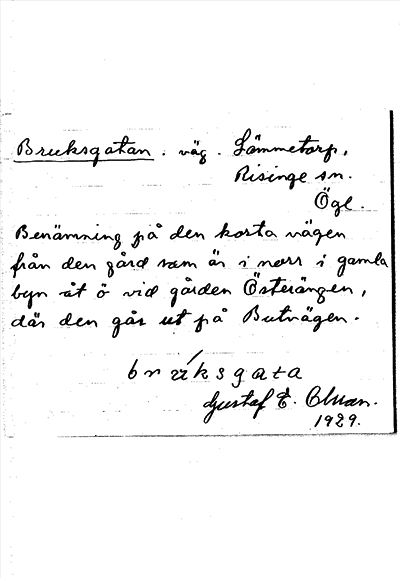 Bruksgatan. väg. Lämmetorp,
Risinge sn.
Ögl.
Benämning på den korta vägen
från den gård som är i norr i gamla
byn åt ö vid gården Österängen,
där den går ut på Butvägen.
bruksgata
Gustaf E. Olsson.
1929.